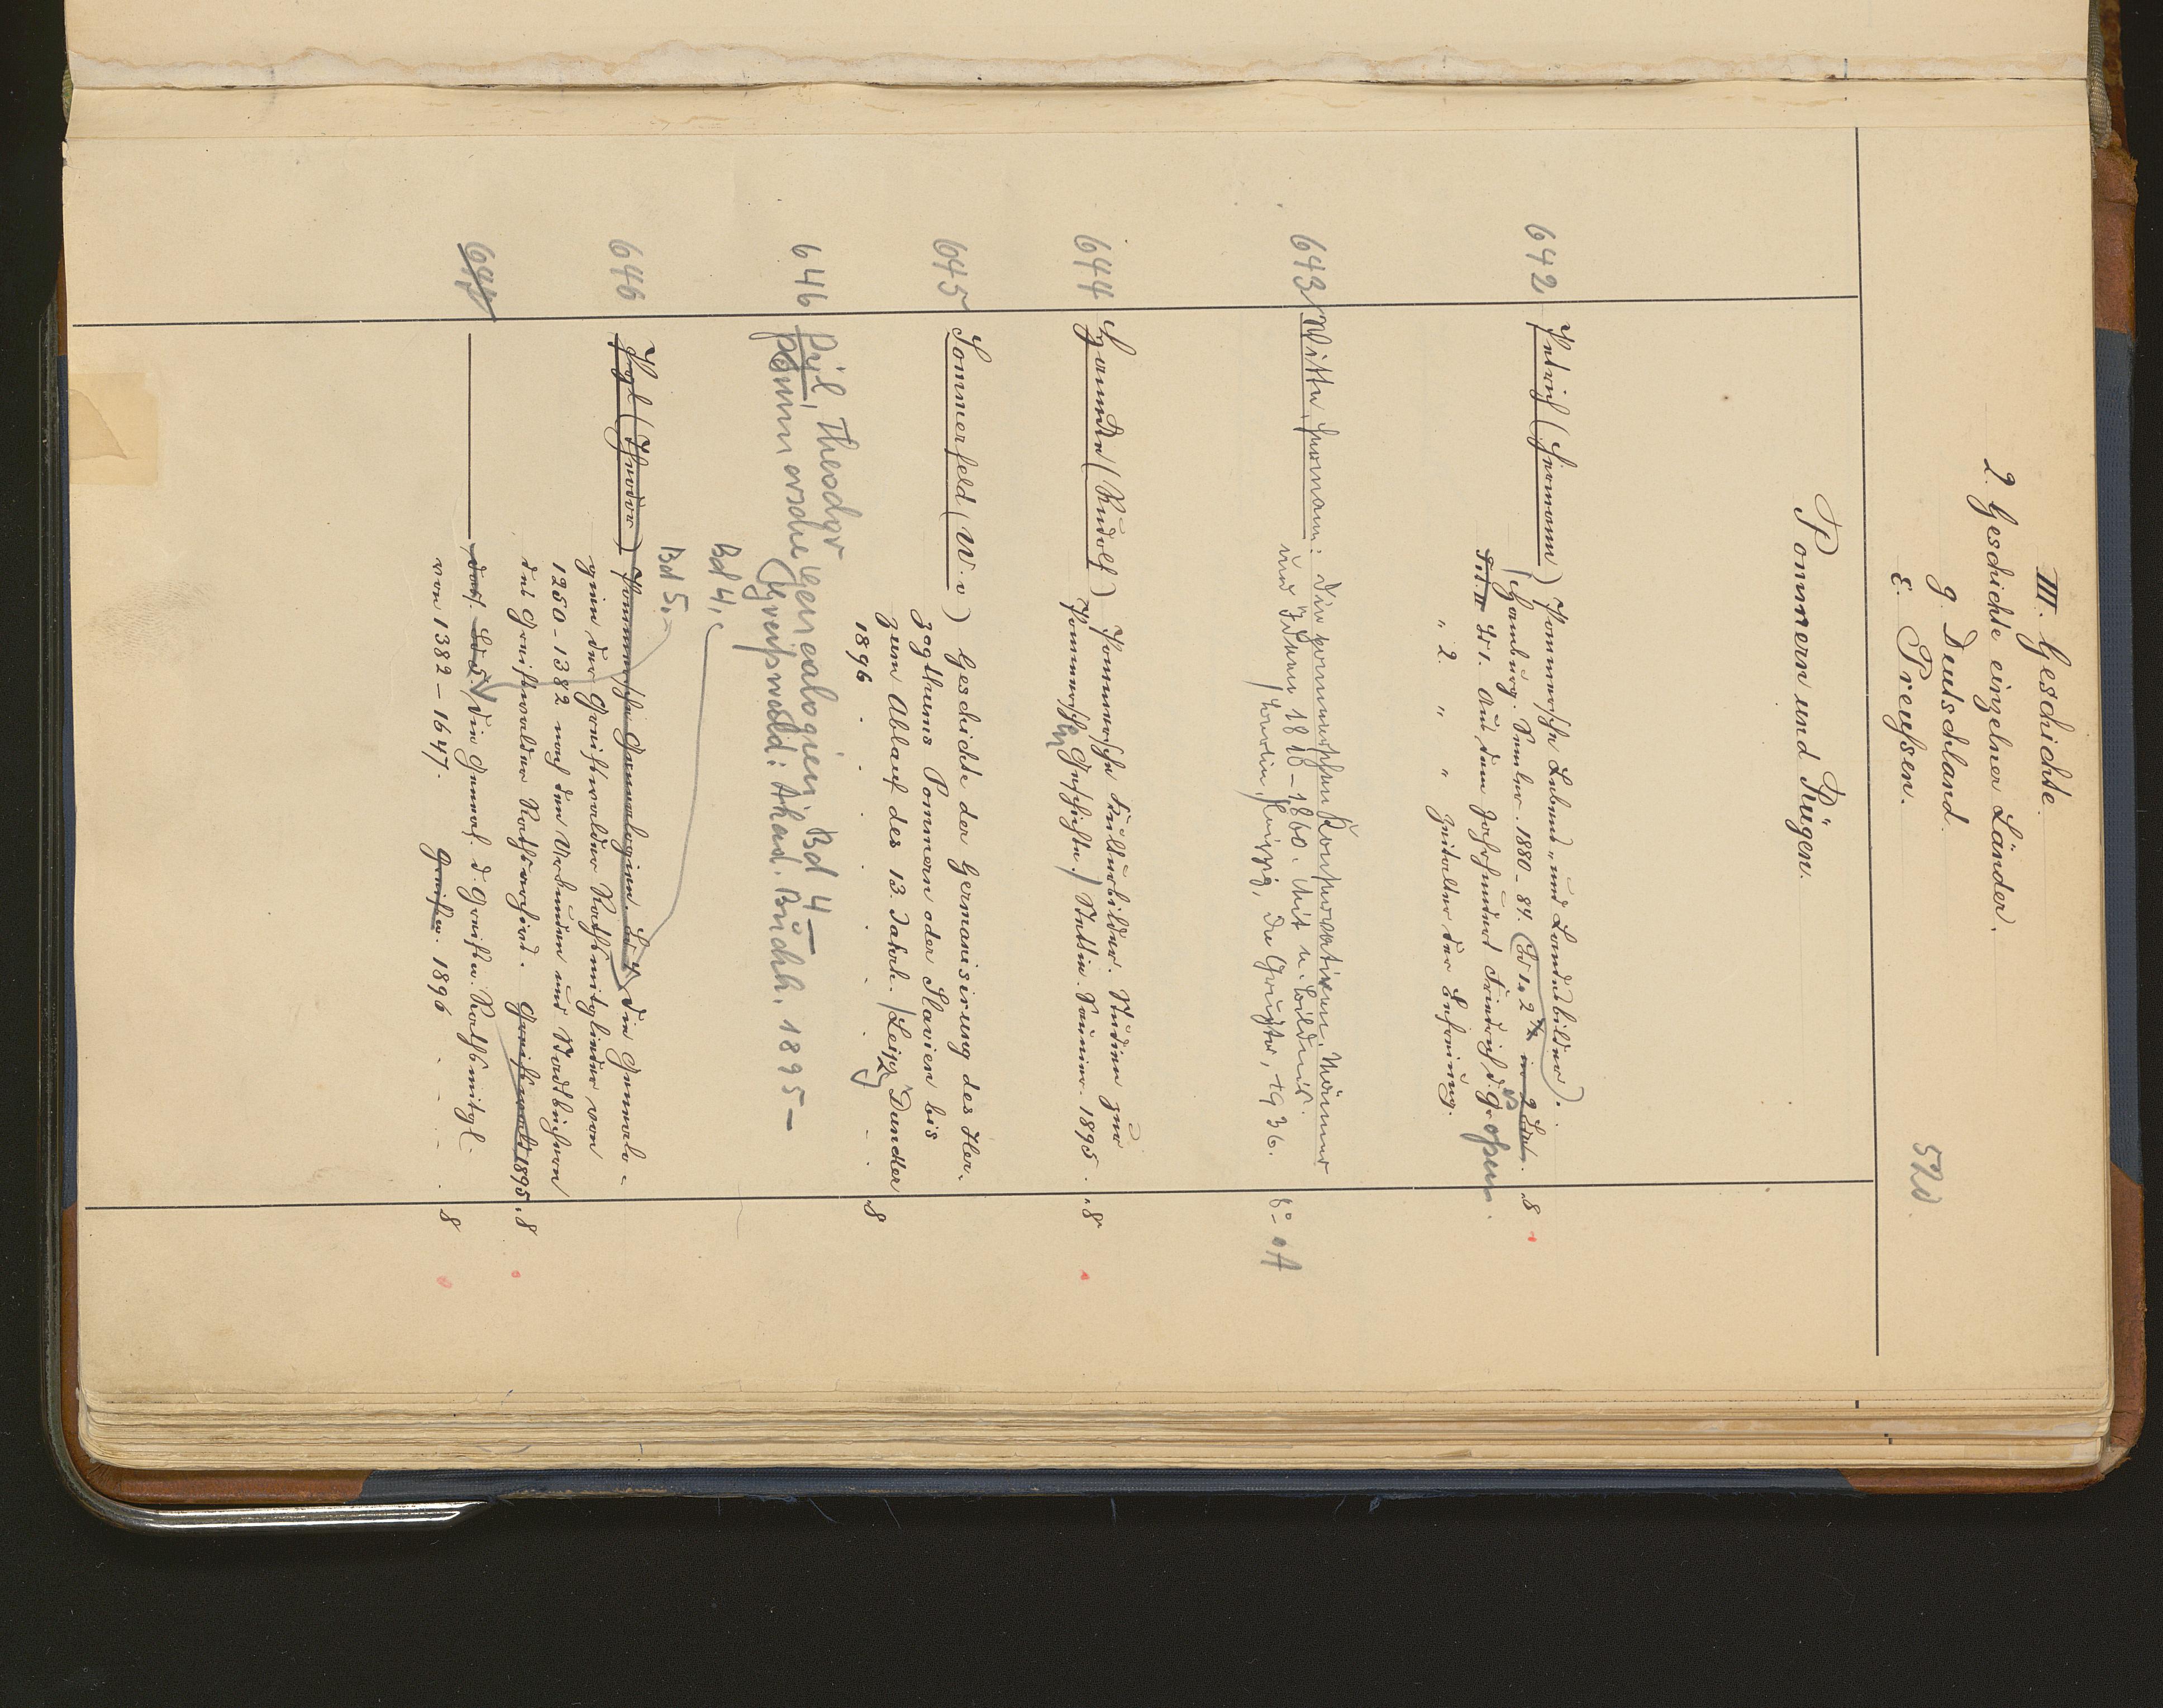 III. Geschichte.
2. Geschichte einzelner Länder.
g. Deutschland.
ε. Preußen.
520.
Pommern und Rügen.
642 Petrich (Hermann) Pommersche Lebens- und Landesbilder.
(Hamburg. 1880-84. Bd 1 u 2 in 2 8
Bd 1. Aus dem Jahrhundert Friedrich d. Großen.
" 2. " " Zeitalter der Befreiung.
643 Witte, Hermann: Die pommerschen Konservativen. Männer
und Ideen 1818-1860. Mit n. Bildnis.
Berlin, Leipzig, De Gruyter, 1936. 8°
644 Hanncke (Rudolf) Pommersche Kulturbilder. Studien zur
Pommerschen Geschichte. Stettin. Saunier. 1895. 8
645 Sommerfeld (W. v) Geschichte der Germanisirung des Her-
zogthums Pommern oder Slavien bis
zum Ablauf des 13. Jahrh. (Leipz. Duncker
1896 8
646 Pyl, Theodor
Pommersche Genealogien, Bd 4-5
(Greifswald: Akad. Buchh. 1895-
Bd 4.
Bd 5.
646 Pyl (Theodor) Pommersche Genealogien. Bd 4. Die Genealo-
gien der Greifswalder Rathsmitglieder von
1250-1382 nach den Urkunden und Stadtbüchern
des Greifswalder Rathsarchivs. Greifswald 1895. 8
647 Bd 5. Die Geneal. d. Greifsw. Rathsmitgl.
von 1382-1647. Greifsw. 1896 8